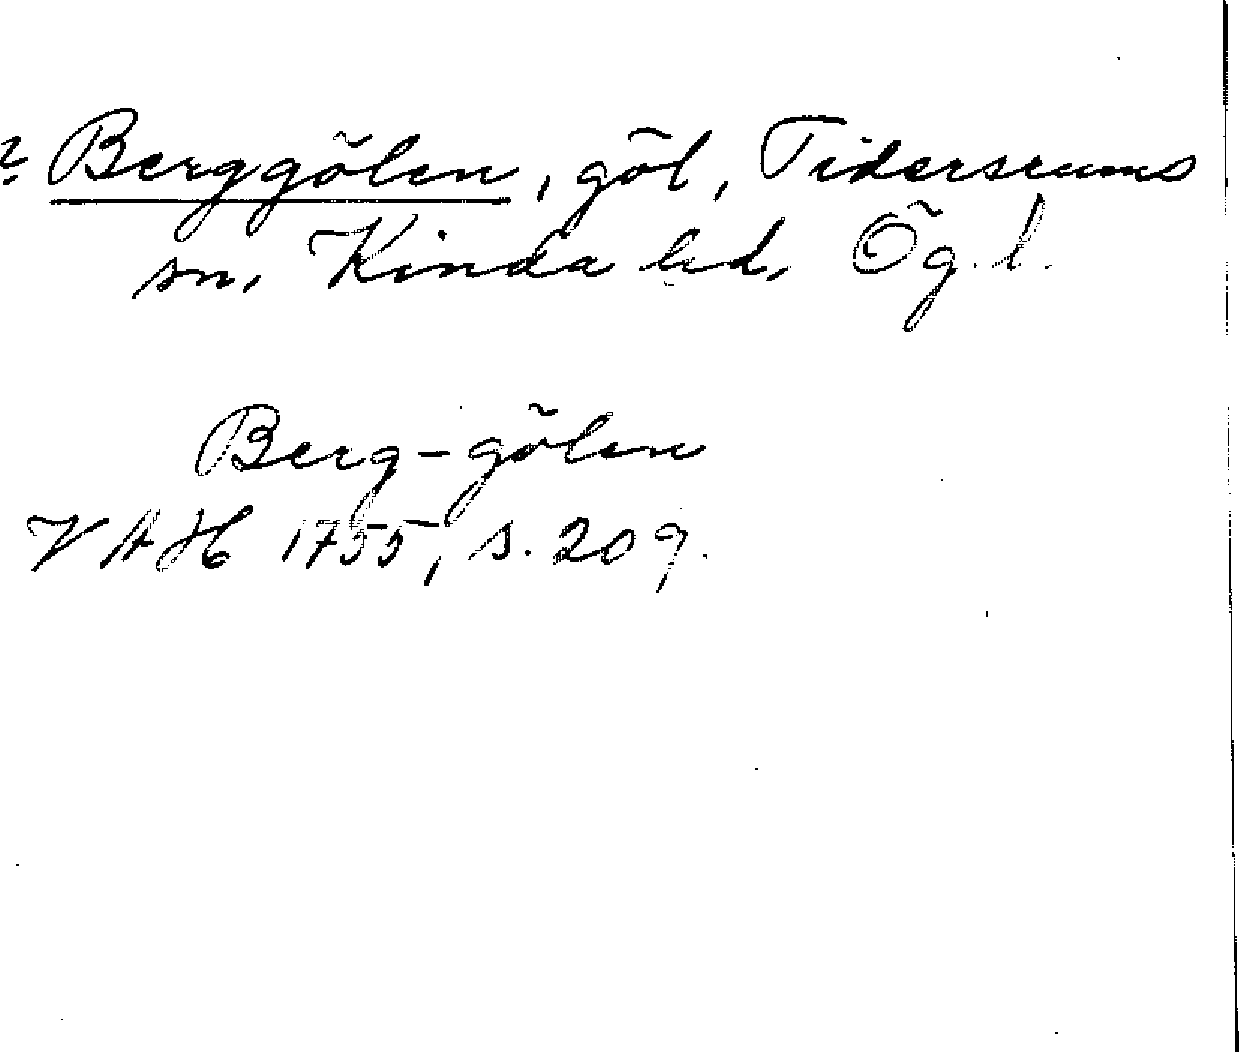 ? Berggölen, göl, Tidersrums
sn, Kinda hd, Ög. l.
Berg-gölen
VAH 1755, s. 209.